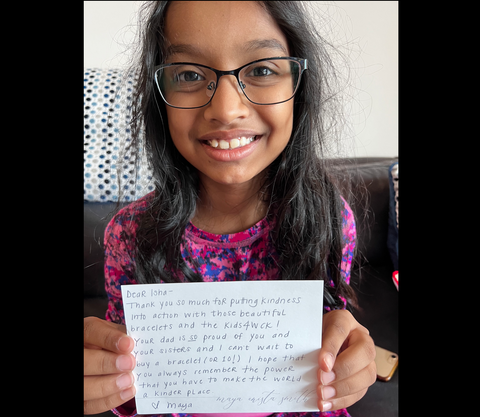 Dear Isha-
Thank you so much for puting kindness
into action with those beautiful
bracelets and the Kids4WCK!
Your dad is so proud of you and
your sisters and I can't wait to
buy a bracelet (OR 10!) I hope that
you always remember the power
that you have to make the world
a kinder place.
Maya